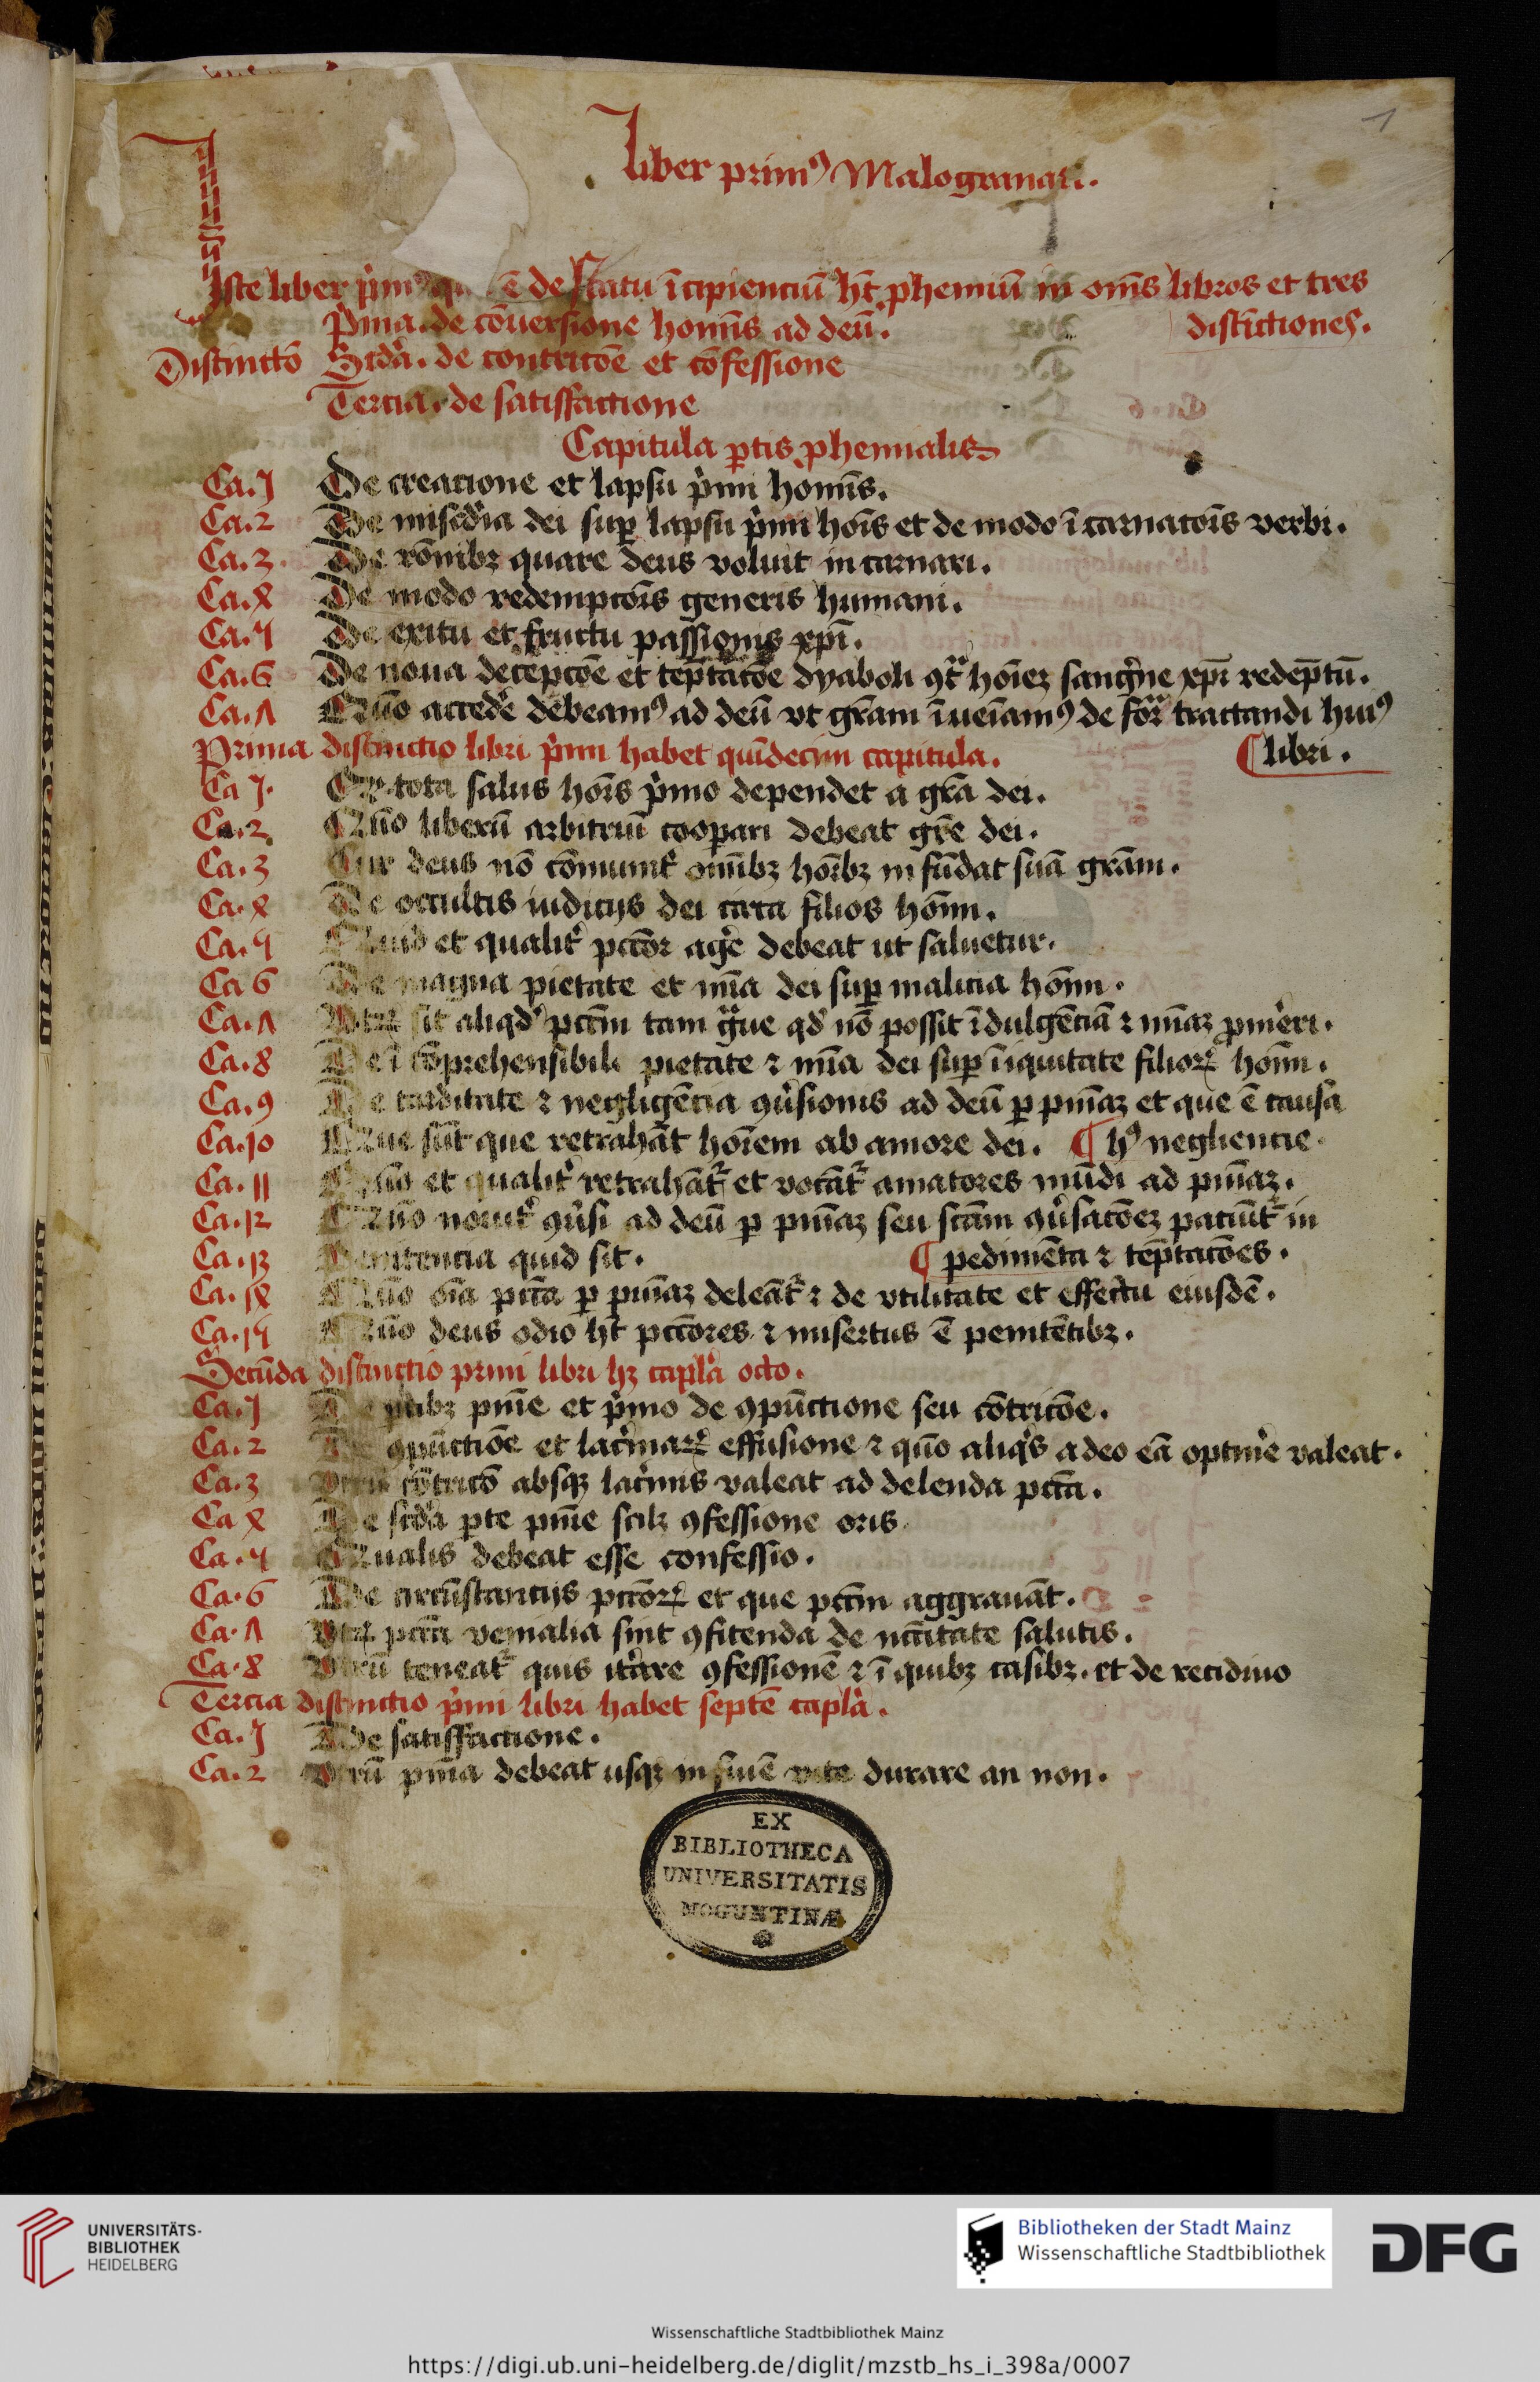 1
Liber primꝰ Malogranati.
Iste liber pͥmꝰ ē de statu īcipienciū hꝫ ꝓhemiū in om̄s libros et tres
Pͥma. de cōuersione homīs ad deū. distīctiones.
Distinctō Scd̄a. de contricōe et cōfessione
Tercia. de satisfactione
Capitula ꝑtis ꝓhemialis
Ca. 1 De creacione et lapsu pͥmi homīs.
Ca. 2 De miscd̓ia dei suꝑ lapsu pͥmi hoīs et de modo īcarnacoīs verbi.
Ca. 3. De rōnibꝫ quare deus voluit incarnari.
Ca. 4 De modo redempcōis generis humani.
Ca. 5 De exitu et fructu passionis xp̄i.
Ca. 6 De noua decepcōe et tēptacōe dyaboli ꝯtͣ hoīeꝫ sangͥne xp̄i redēptū.
Ca. 7 Quō acced̓e debeamꝰ ad deū vt grām īueīamꝰ de forͣ tractandi huiꝰ
Prima distinctio libri pͥmi habet quīdecim capitula. ¶ libri.
Ca 1. tota salus hoīs pͥmo dependet a grā dei.
Ca. 2 Quō liberū arbitriū cooꝑari debeat grē dei.
Ca. 3 Cur deus nō cōmunit̓ om̄ibꝫ hoībꝫ infūdat suā grām.
Ca. 4 De occultis iudicijs dei circa filios hoīm.
Ca. 5 Quid et qualit̓ pctōr ag̓e debeat ut saluetur.
Ca 6 De magna pietate et mīa dei suꝑ malicia hoīm.
Ca. 7 Utrꝫ sit aliqd̓ pctm̄ tam gͣue qd̓ nō possit īdulgēciā ⁊ mīaꝫ ꝓmͤeri.
Ca. 8 De īcōprehensibili pietate ⁊ mīa dei suꝑ īiquitate filioꝝ hoīm.
Ca. 9 De tarditate ⁊ negligēcia ꝯu̓sionis ad deū ꝑ pn̄iaꝫ et que ē causa
Ca. 10 Que sūt que retrahāt hoīem ab amore dei. ¶ hꝰ negliencie.
Ca. 11 Quō et qualit̓ retrahāt᷑ et vocāt᷑ amatores mūdi ad pn̄iaꝫ.
Ca. 12 Quō nouit̓ ꝯu̓si ad deū ꝑ pn̄iaꝫ seu scām ꝯu̓sacōeꝫ paciūt᷑ in
Ca. 13 Penitencia quid sit. ¶ pedimēta ⁊ tēptacōes.
Ca. 14 Quō oīa pctā ꝑ pn̄iaꝫ deleāt᷑ ⁊ de vtilitate et effectu eiusdē.
Ca. 15 Quō deus odio hꝫ pctōres ⁊ misertus ē penitētibꝫ.
Secūda distinctio primi libri hꝫ capl̄a octo.
Ca. 1 De ꝑtibꝫ pn̄ie et pͥmo de ꝯpūctione seu cōtricōe.
Ca. 2 De ꝯpūctiōe et lacͥmaꝝ effusione ⁊ quō aliqͥs a deo eā optin̓e valeat.
Ca. 3 Utrū cōtricō absqꝫ lacͥmis valeat ad delenda pctā.
Ca 4 De scd̄a ꝑte pn̄ie scilꝫ ꝯfessione oris.
Ca. 5 Qualis debeat esse confessio.
Ca. 6 De circūstancijs pctōꝝ et que pctm̄ aggrauāt.
Ca. 7 Utrꝫ pctā venialia sint ꝯfitenda de nccitate salutis.
Ca. 8 Utrū teneat᷑ quis it̓are ꝯfessionē ⁊ ī quibꝫ casibꝫ. et de recidiuo
Tercia distinctio pͥmi libri habet septē capl̄a.
Ca. 1 De satisfactione.
Ca. 2 Utrū pn̄ia debeat usqꝫ in finē vite durare an non.
EX
BIBLIOTHECA
UNIVERSITATIS
MOGUNTINÆ
UNIVERSITÄTS-
BIBLIOTHEK
HEIDELBERG
Bibliotheken der Stadt Mainz
Wissenschaftliche Stadtbibliothek
DFG
Wissenschaftliche Stadtbibliothek Mainz
https://digi.ub.uni-heidelberg.de/diglit/mzstb_hs_i_398a/0007